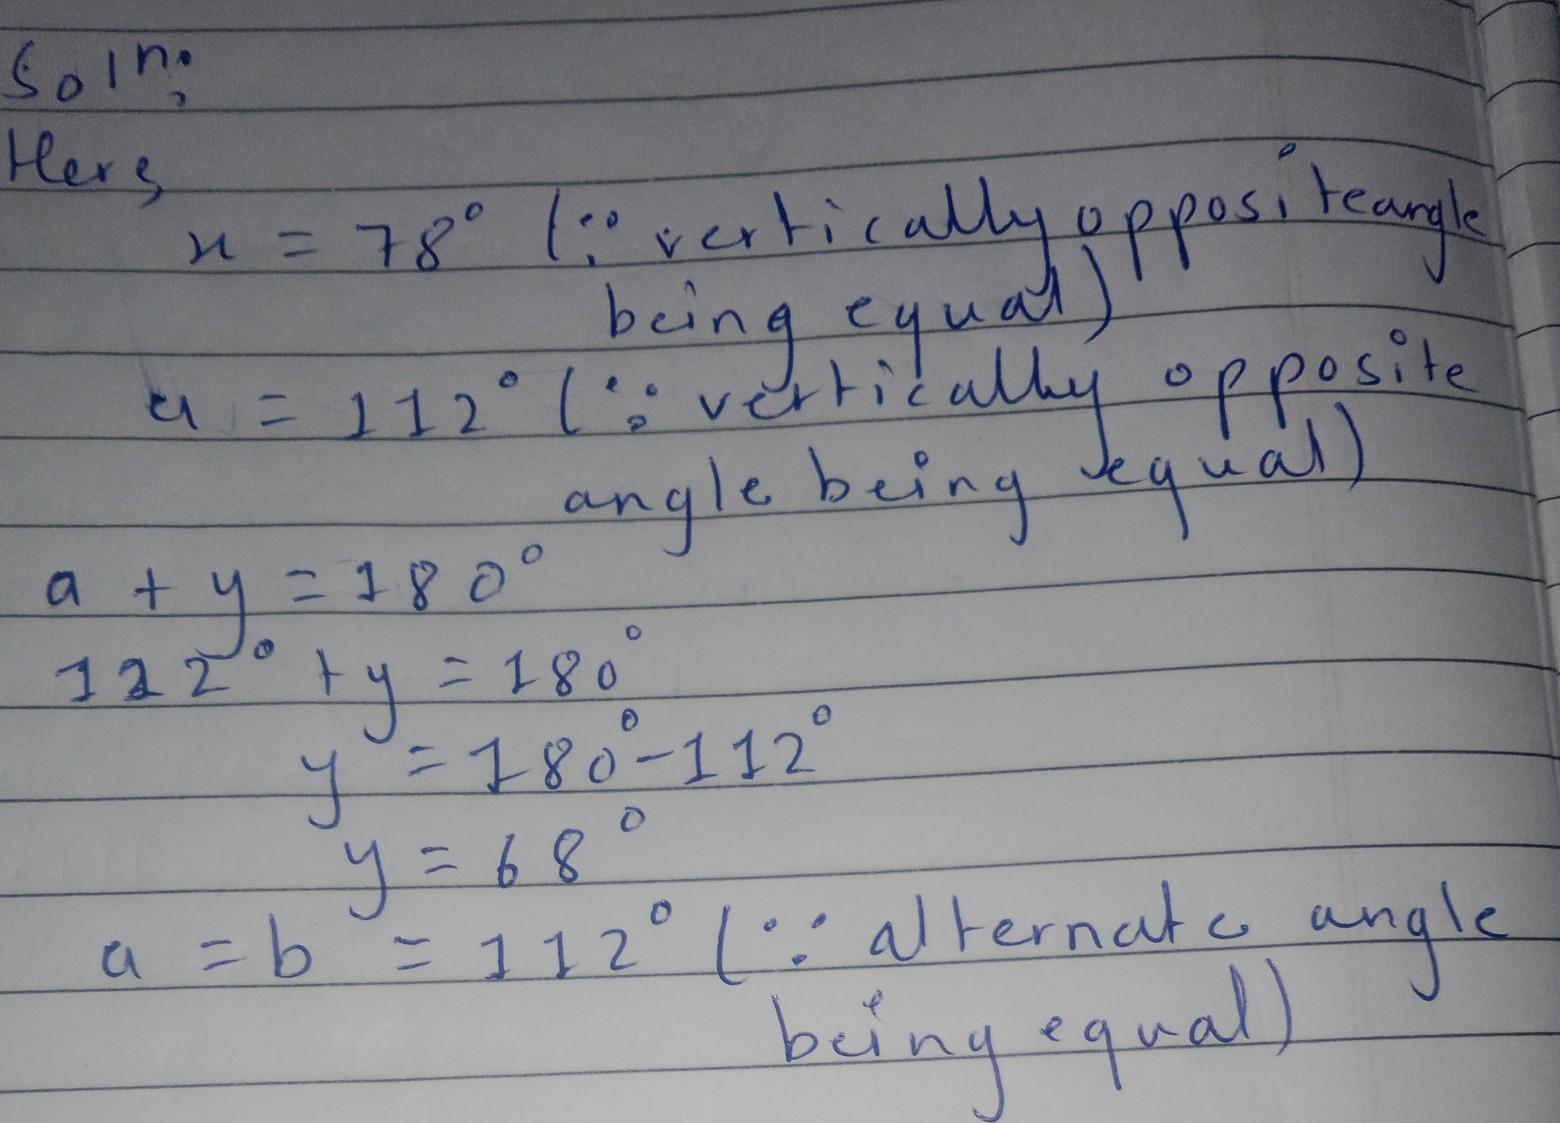 Soln:
Here,
x = 78° (∵ vertically opposite angle
being equal)
a = 112° (∵ vertically opposite
angle being equal)
a + y = 180°
112° + y = 180°
y = 180° - 112°
y = 68°
a = b = 112° (∵ alternate angle
being equal)